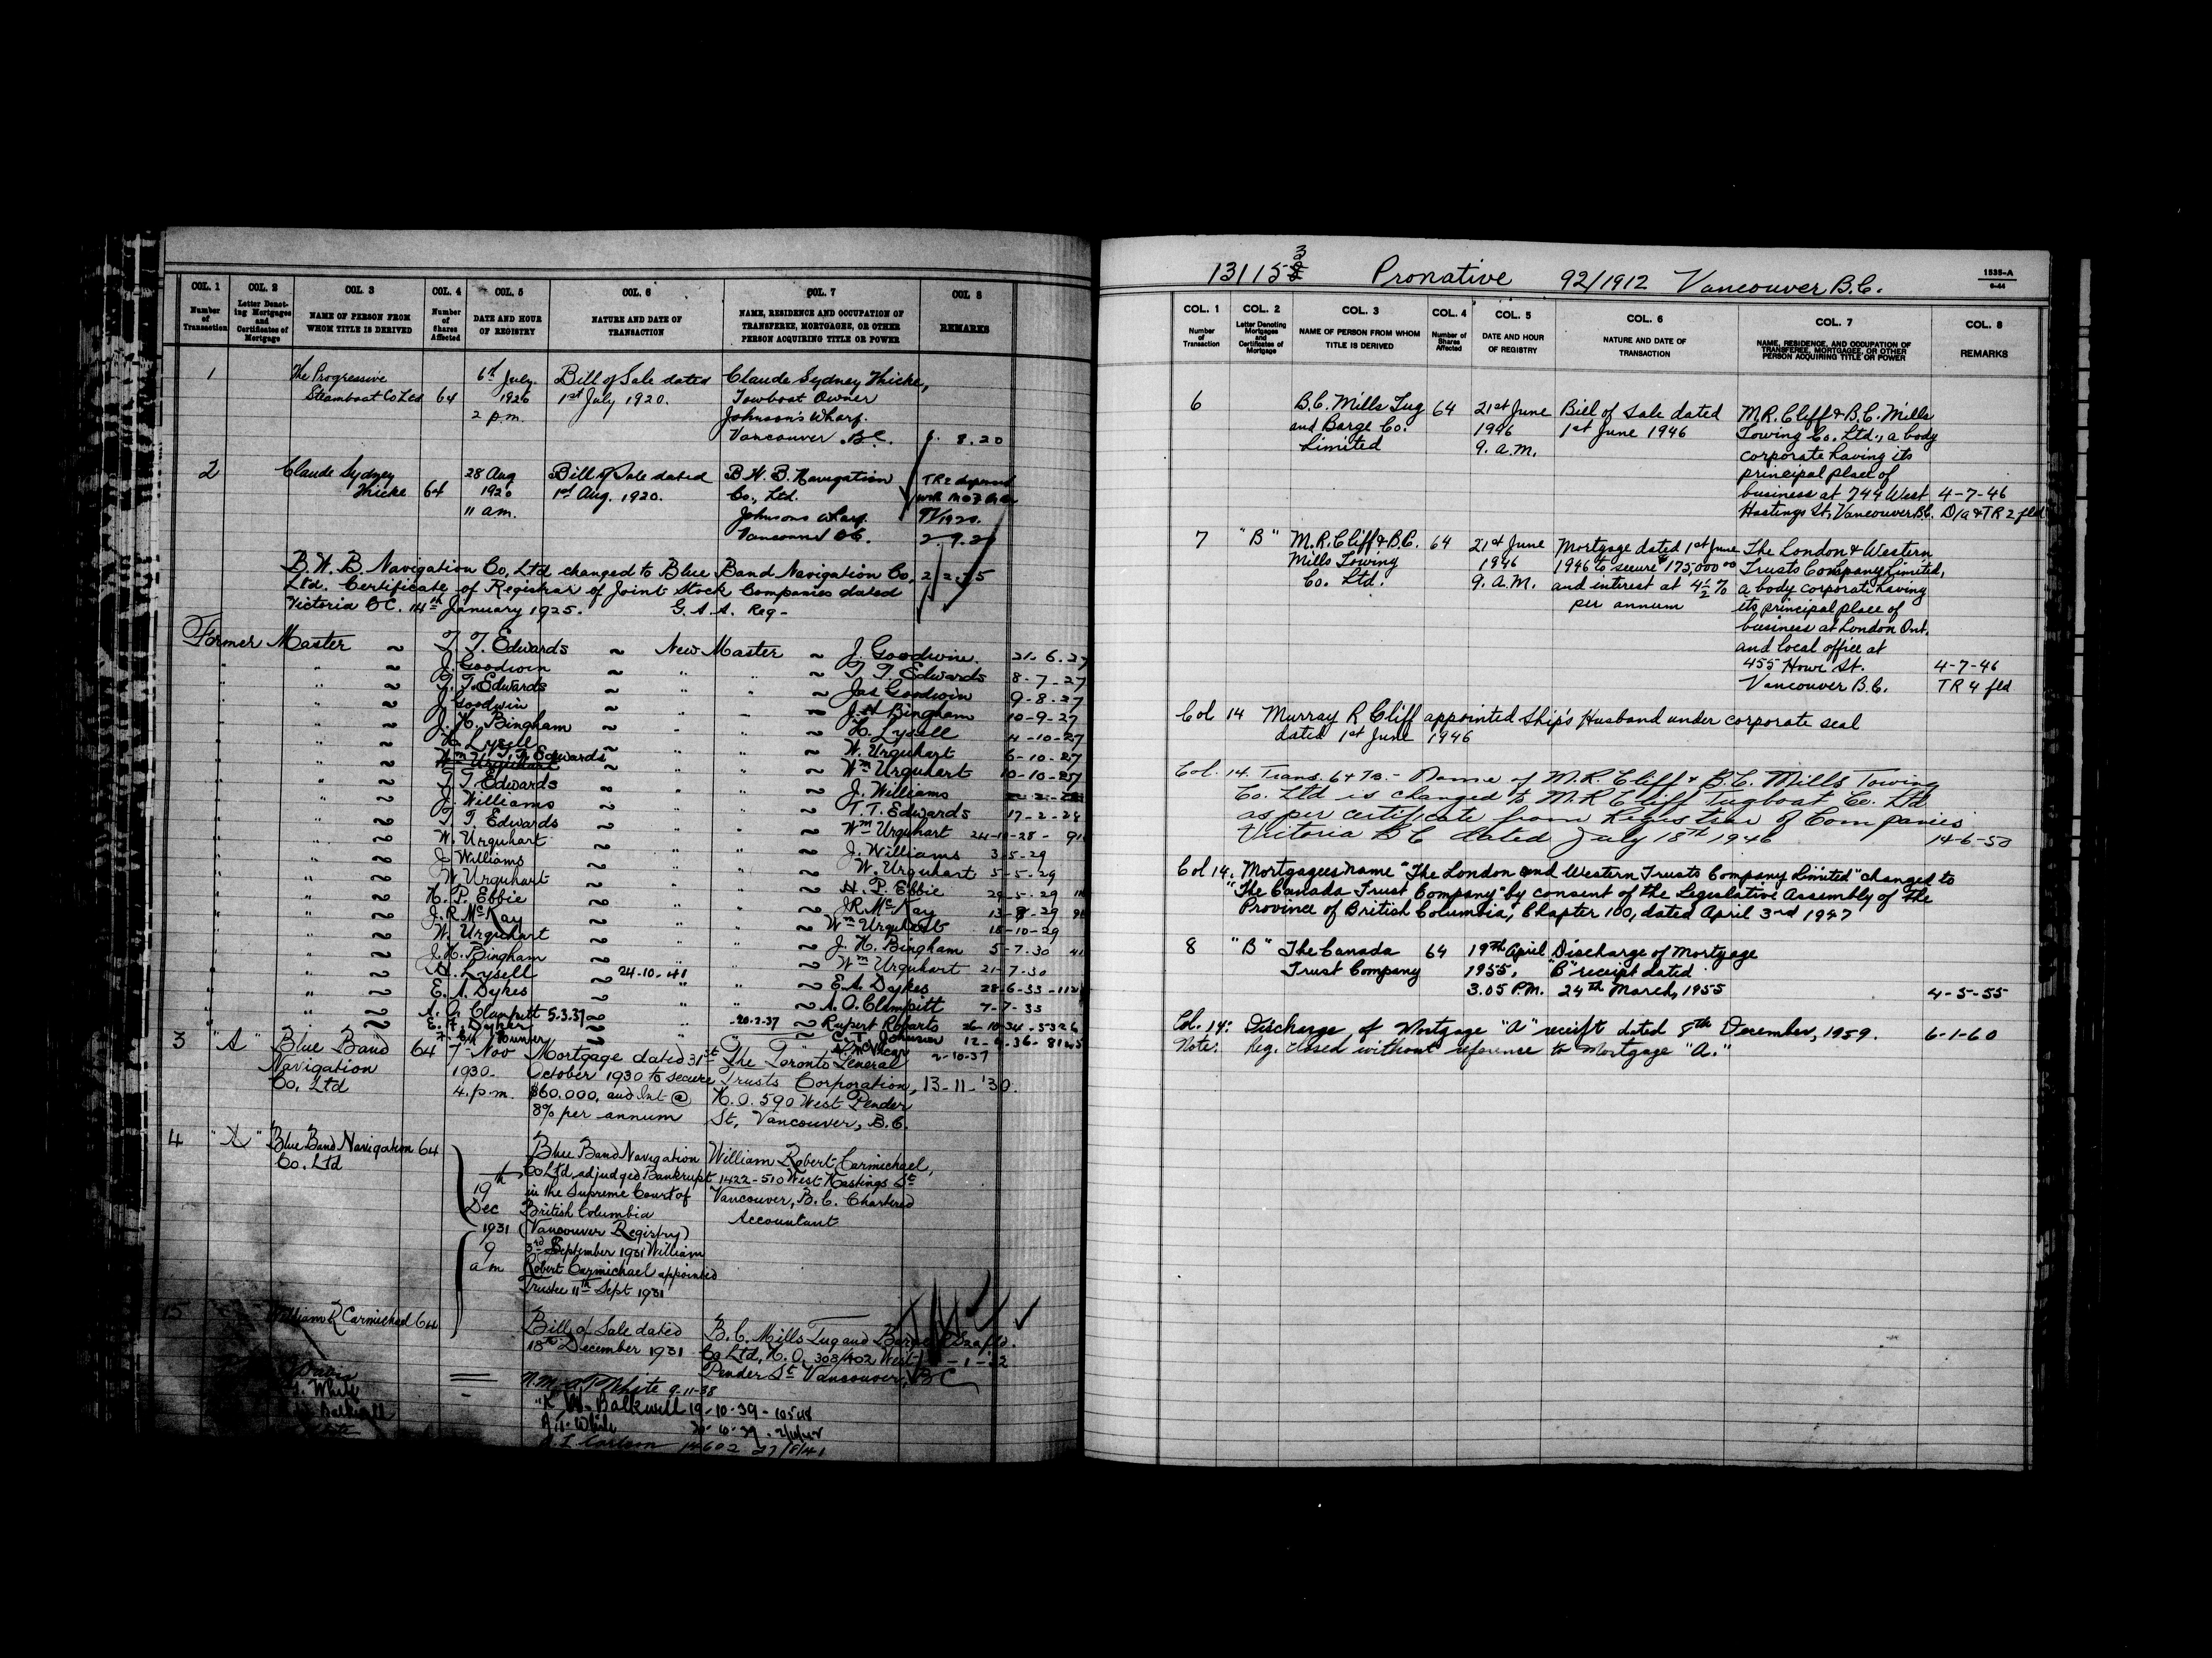 COL. 1 COL. 2 COL. 3 COL. 4 COL. 5 COL. 6 COL. 7 COL 8
Number of Transaction
Letter Denoting Mortgages and Certificates of Mortgage
NAME OF PERSON FROM WHOM TITLE IS DERIVED
Number of Shares Affected
DATE AND HOUR OF REGISTRY
NATURE AND DATE OF TRANSACTION
NAME, RESIDENCE AND OCCUPATION OF TRANSFEREE, MORTGAGEE, OR OTHER PERSON ACQUIRING TITLE OR POWER
REMARKS
1 The Progressive 6th July. Bill of Sale dated Claude Sydney Thicke,
Steamboat Co Ltd 64 1920 1st July 1920. Towboat Owner
2 p.m. Johnson's Wharf.
Vancouver B.C. 8.20
2 Claude Sydney 28 Aug Bill of Sale dated B.W.B. Navigation TR2
Thicke 64 1920 1st Aug. 1920. Co., Ltd.
11 am. Johnsons Wharf. 9/1920.
Vancouver B.C. 2.9.20
B.W.B. Navigation Co, Ltd changed to Blue Band Navigation Co,
Ltd. Certificate of Registrar of Joint Stock Companies dated
Victoria B.C. 14th January 1925. G.A.A. Reg-
Former Master ~ T. T. Edwards ~ New Master ~ J. Goodwin. 21.6.27
" " ~ J. Goodwin ~ " " ~ T. T. Edwards 8-7-27
" " ~ T. T. Edwards ~ " " ~ Jas Goodwin 9-8-27
" " ~ J. Goodwin ~ " " ~ J.H Bingham 10-9-27
" " ~ J. H. Bingham ~ " " ~ H. Lysell 4-10-27
" " ~ H. Lysell ~ " " ~ W. Urquhart 6-10-27
" " ~ Wm Urquhart T. T. Edwards ~ " " ~ Wm Urquhart 10-10-27
" " ~ T. T. Edwards ~ " " ~ J. Williams
" " ~ J. Williams ~ " " ~ T. T. Edwards 17-2-28
" " ~ T. T. Edwards ~ " " ~ Wm Urquhart 24-10-28
" " ~ W. Urquhart ~ " " ~ J. Williams 3-5-29
" " ~ J Williams ~ " " ~ W. Urquhart 5-5-29
" " ~ W. Urquhart ~ " " ~ H. P. Ebbie 29-5-29
" " ~ H. P. Ebbie ~ " " ~ J.R. McKay 13-8-29
" " ~ J. R. McKay ~ " " ~ Wm Urquhart 18-10-29
" " ~ W. Urquhart ~ " " ~ J. H. Bingham 5-7-30
" " ~ J. H. Bingham ~ " " ~ Wm Urquhart 21-7-30
" " ~ H. Lysell ~ 24-10-41 " ~ E. A. Dykes 28-6-33
" " ~ E. A. Dykes ~ " " ~ A. O. Clampitt 7-7-33
" " ~ A. O. Clampitt 5.3.37 ~ " 20-2-37 ~ Rupert Roberts 26-10-34-5326
3 "A" Blue Band 64 7th Nov Mortgage dated 31st The Toronto General 2-10-37
Navigation 1930. October 1930 to secure Trusts Corporation, 13-11-'30.
Co. Ltd 4. p.m. $60,000, and Int @ H.O. 590 West Pender
8% per annum St, Vancouver, B.C.
4 "A" Blue Band Navigation 64 Blue Band Navigation William Robert Carmichael,
Co. Ltd Co Ltd, adjudged Bankrupt 1422-510 West Hastings St
19th in the Supreme Court of Vancouver, B.C. Chartered
Dec British Columbia Accountant
1931 (Vancouver Registry)
9 3rd September 1931 William
am Robert Carmichael appointed
Trustee 11th Sept 1931
5 William R Carmichael 64 Bill of Sale dated B.C. Mills Tug and Barge
18th December 1931 Co Ltd, H.O. 303/402 West
Pender St Vancouver, BC
White 9-11-38
W. Balkwill 19-10-39-10548
A. T. White
14602 27/8/41
131153 Pronative 92/1912 Vancouver B.C.
1535-A
9-44
COL. 1 COL. 2 COL. 3 COL. 4 COL. 5 COL. 6 COL. 7 COL. 8
Number of Transaction
Letter Denoting Mortgages and Certificates of Mortgage
NAME OF PERSON FROM WHOM TITLE IS DERIVED
Number of Shares Affected
DATE AND HOUR OF REGISTRY
NATURE AND DATE OF TRANSACTION
NAME, RESIDENCE, AND OCCUPATION OF TRANSFEREE, MORTGAGEE, OR OTHER PERSON ACQUIRING TITLE OR POWER
REMARKS
6 B.C. Mills Tug 64 21st June Bill of Sale dated M.R. Cliff & B.C. Mills
and Barge Co. 1946 1st June 1946 Towing Co. Ltd., a body
Limited 9. A.M. corporate having its
principal place of
business at 744 West 4-7-46
Hastings St, Vancouver B.C. D/a & TR 2 fld
7 "B" M.R. Cliff & B.C. 64 21st June Mortgage dated 1st June The London & Western
Mills Towing 1946 1946 to secure $175,000 00 Trusts Company Limited,
Co. Ltd. 9. A.M. and interest at 4½% a body corporate having
per annum its principal place of
business at London Ont.
and local office at
455 Howe St. 4-7-46
Vancouver B.C. TR 4 fld
Col 14 Murray R Cliff appointed Ship's Husband under corporate seal
dated 1st June 1946
Col. 14. Trans. 6 & 7B. - Name of M.R. Cliff & B.C. Mills Towing
Co. Ltd is changed to M.R Cliff Tugboat Co. Ltd
as per certificate from Registrar of Companies
Victoria B C dated July 18th 1946 14-6-50
Col 14. Mortgagees name "The London and Western Trusts Company Limited" changed to
"The Canada Trust Company" by consent of the Legislative Assembly of the
Province of British Columbia, Chapter 100, dated April 3rd 1947
8 "B" The Canada 64 19th April Discharge of Mortgage
Trust Company 1955, "B" receipt dated
3.05 P.M. 24th March, 1955 4-5-55
Col. 14: Discharge of Mortgage "A" receipt dated 8th December, 1959. 6-1-60
Note: Reg. closed without reference to Mortgage "A."